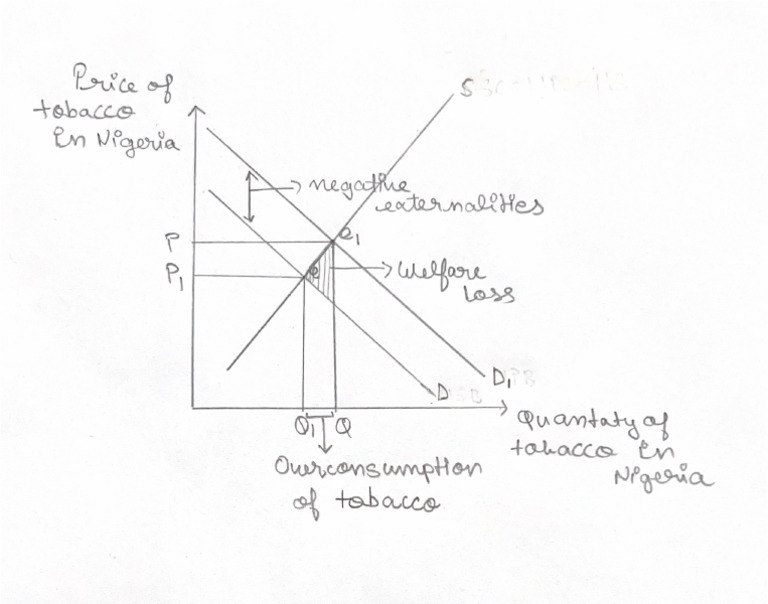 Price of
tobacco
in Nigeria
S
negative
externalities
P
e1
P1
e
Welfare
loss
D1
D
Q1 Q
Quantaty of
tobacco in
Nigeria
Overconsumption
of tobacco